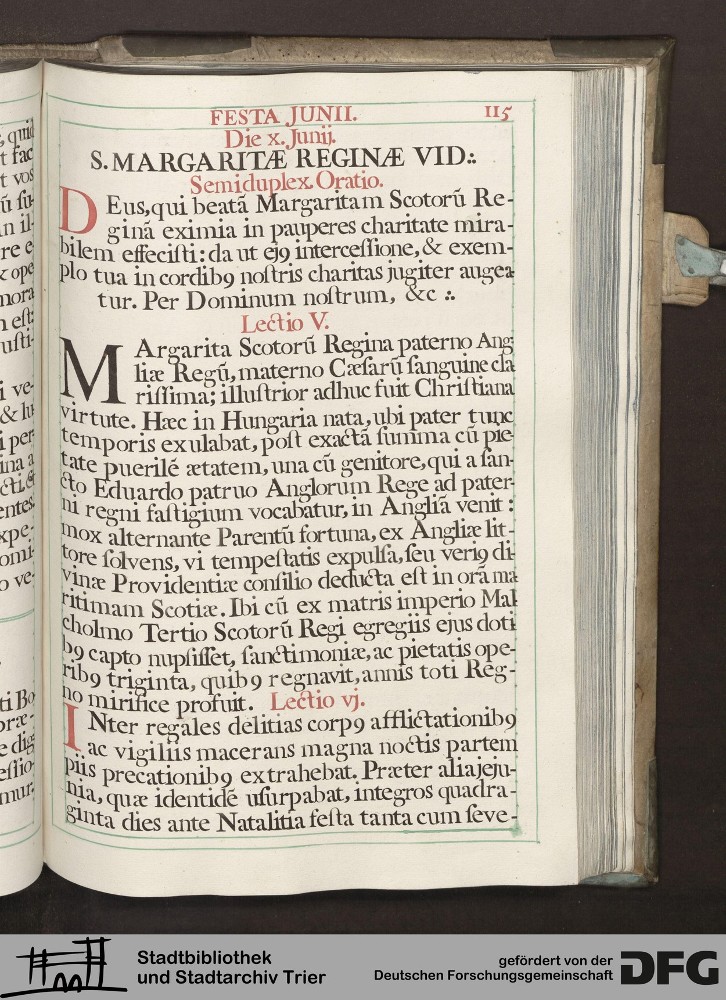 FESTA JUNII. 115
Die x. Junij.
S. MARGARITÆ REGINÆ VID∴
Semiduplex. Oratio.
DEus, qui beatã Margaritam Scotorũ Re-
ginã eximia in pauperes charitate mira-
bilem effeciſti: da ut ejꝰ interceſſione, & exem-
plo tua in cordibꝰ noſtris charitas jugiter augea
tur. Per Dominum noſtrum, &c ∴
Lectio V.
MArgarita Scotorũ Regina paterno Ang
liæ Regũ, materno Cæſarũ ſanguine cla
riſſima; illuſtrior adhuc fuit Chriſtiana
virtute. Hæc in Hungaria nata, ubi pater tunc
temporis exulabat, poſt exactã ſumma cũ pie
tate puerilẽ ætatem, una cũ genitore, qui a ſan-
cto Eduardo patruo Anglorum Rege ad pater-
ni regni faſtigium vocabatur, in Angliã venit:
mox alternante Parentũ fortuna, ex Angliæ lit-
tore ſolvens, vi tempeſtatis expulſa, ſeu veriꝰ di-
vinæ Providentiæ conſilio deducta eſt in orã ma
ritimam Scotiæ. Ibi cũ ex matris imperio Mal
cholmo Tertio Scotorũ Regi egregiis ejus doti
bꝰ capto nupſiſſet, ſanctimoniæ, ac pietatis ope-
ribꝰ triginta, quibꝰ regnavit, annis toti Reg-
no mirifice profuit. Lectio vj.
INter regales delitias corpꝰ afflictationibꝰ
ac vigiliis macerans magna noctis partem
piis precationibꝰ extrahebat. Præter alia jeju-
nia, quæ identidẽ uſurpabat, integros quadra-
ginta dies ante Natalitia feſta tanta cum ſeve-
Stadtbibliothek
und Stadtarchiv Trier
gefördert von der
Deutschen Forschungsgemeinschaft
DFG